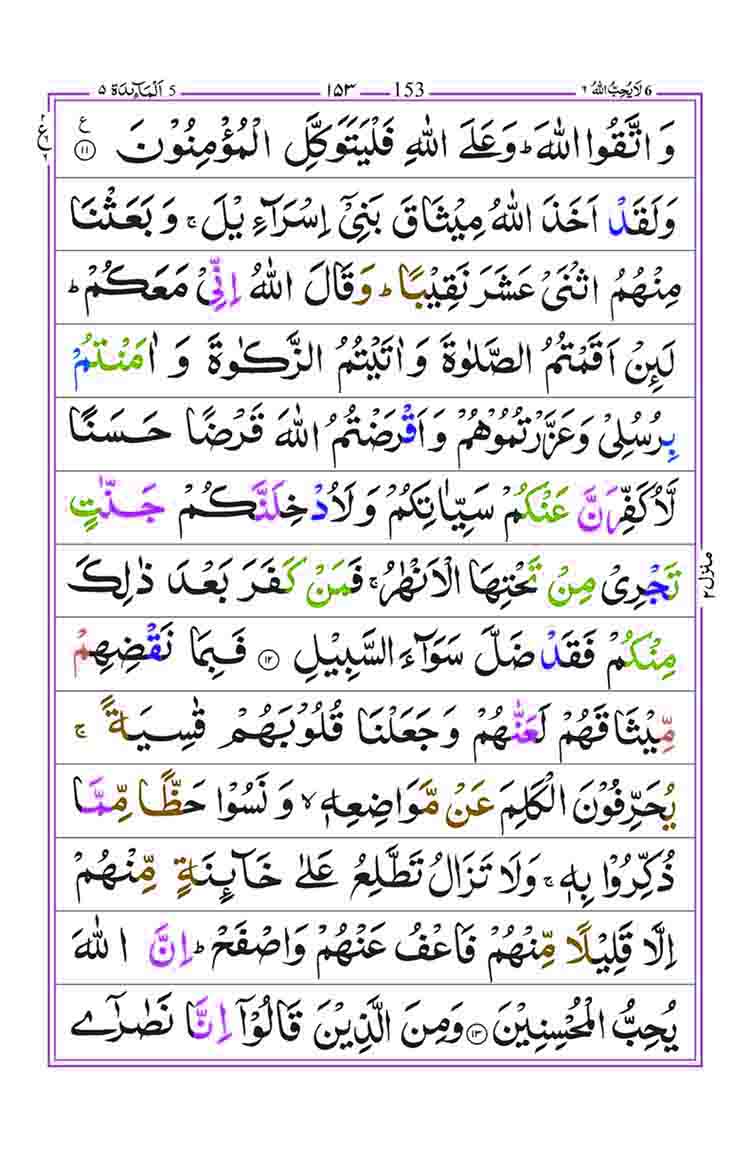 6 لَا یُحِبُّ اللّٰهُ ٦ 153 ١٥٣ 5 اَلْمَآئِدَة ٥
وَ اتَّقُوا اللّٰهَ ؕ وَ عَلَی اللّٰهِ فَلْیَتَوَكَّلِ الْمُؤْمِنُوْنَ ۱۱ ع
وَ لَقَدْ اَخَذَ اللّٰهُ مِیْثَاقَ بَنِیْۤ اِسْرَآءِیْلَ ۚ وَ بَعَثْنَا
مِنْهُمُ اثْنَیْ عَشَرَ نَقِیْبًا ؕ وَ قَالَ اللّٰهُ اِنِّیْ مَعَكُمْ ؕ
لَىِٕنْ اَقَمْتُمُ الصَّلٰوةَ وَ اٰتَیْتُمُ الزَّكٰوةَ وَ اٰمَنْتُمْ
بِرُسُلِیْ وَ عَزَّرْتُمُوْهُمْ وَ اَقْرَضْتُمُ اللّٰهَ قَرْضًا حَسَنًا
لَّاُكَفِّرَنَّ عَنْكُمْ سَیِّاٰتِكُمْ وَ لَاُدْخِلَنَّكُمْ جَنّٰتٍ
تَجْرِیْ مِنْ تَحْتِهَا الْاَنْهٰرُ ۚ فَمَنْ كَفَرَ بَعْدَ ذٰلِكَ
مِنْكُمْ فَقَدْ ضَلَّ سَوَآءَ السَّبِیْلِ ۱۲ فَبِمَا نَقْضِهِمْ
مِّیْثَاقَهُمْ لَعَنّٰهُمْ وَ جَعَلْنَا قُلُوْبَهُمْ قٰسِیَةً ۚ
یُحَرِّفُوْنَ الْكَلِمَ عَنْ مَّوَاضِعِهٖ ۙ وَ نَسُوْا حَظًّا مِّمَّا
ذُكِّرُوْا بِهٖ ۚ وَ لَا تَزَالُ تَطَّلِعُ عَلٰی خَآىِٕنَةٍ مِّنْهُمْ
اِلَّا قَلِیْلًا مِّنْهُمْ فَاعْفُ عَنْهُمْ وَ اصْفَحْ ؕ اِنَّ اللّٰهَ
یُحِبُّ الْمُحْسِنِیْنَ ۱۳ وَ مِنَ الَّذِیْنَ قَالُوْۤا اِنَّا نَصٰرٰۤی
منزل ۲